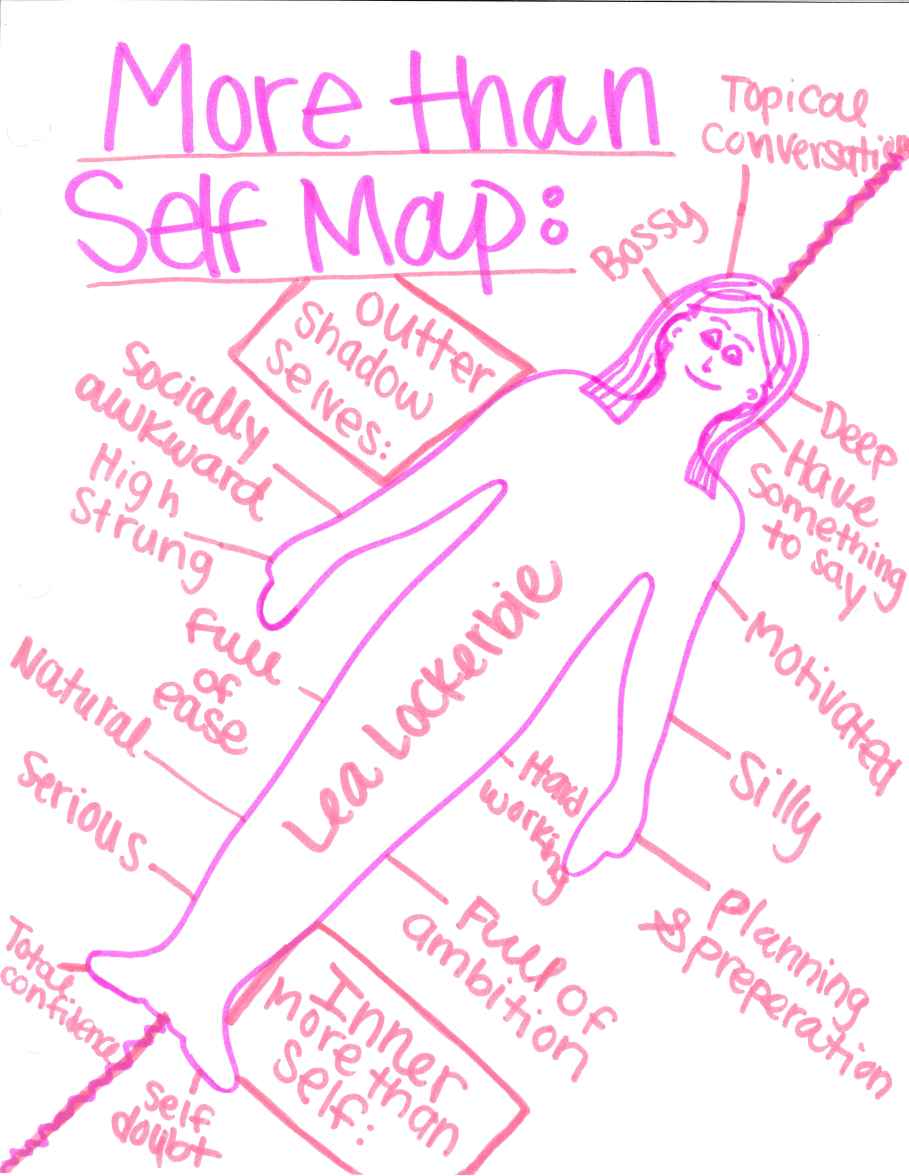 More than
Self Map:
Topical
Conversation
Bossy
Outter
Shadow
Selves:
Socially
awkward
High
Strung
Full
of
ease
Natural
Serious
Total
confidence
self
doubt
Lea Lockerbie
Deep
Have
Something
to say
Motivated
Silly
Planning
& preperation
Hard
working
Full of
ambition
Inner
More than
Self: